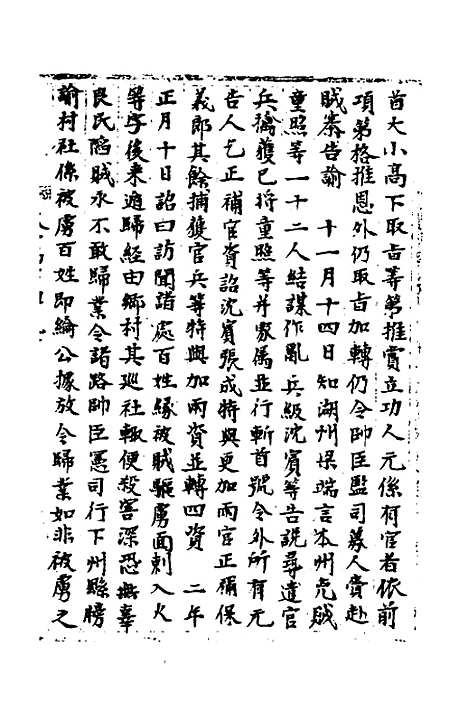 首大小高下取旨等第推賞立功人元係何官者依前
項第格推恩外仍取旨加轉仍令帥臣監司募人賫赴
賊寨告諭　十一月十四日知湖州梁端言本州兇賊
童照等一十二人結謀作亂兵級沈賓等告說尋遣官
兵擒獲已將童照等并家属並行斬首號令外所有元
告人乞正補官資詔沈賓張成特與更加兩官正補保
義郎其餘捕獲官兵等特與加兩資並轉四資　二年
正月十日詔曰訪聞諸處百姓緣被賊驅虜面刺入火
等字後来逃歸經由鄉村其巡社輒便殺害深恐無辜
良民陷賊永不敢歸業令諸路帥臣憲司行下州縣牓
諭村社係被虜百姓即給公據放令歸業如非被虜之